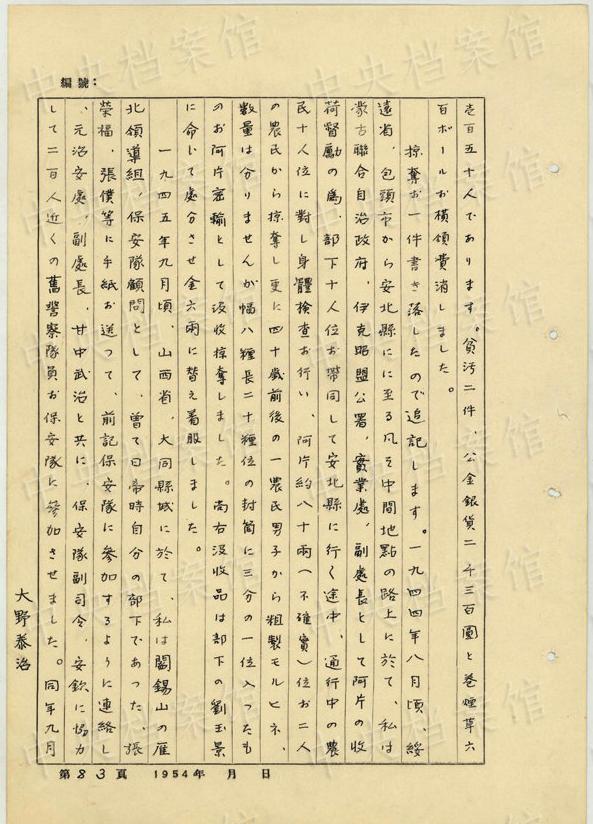 編號：
壱百五十人であります。貪汚二件、公金銀貨二千三百圓と巻煙草六
百ボールお横領費消しました。
掠奪お一件書き落したので追記します。一九四四年八月頃、綏
遠省、包頭市から安北縣にに至る凡そ中間地點の路上に於て、私は
蒙古聯合自治政府、伊克昭盟公署、實業處、副處長として阿片の收
荷督勵の為、部下十人位お帯同して安北縣に行く途中、通行中の農
民十人位に対し身體檢查お行い、阿片約八十兩（不確實）位お二人
の農民から掠奪し更に四十歲前後の一農民男子から粗製モルヒネ、
数量は分りませんが幅八糎長二十糎位の封筒に三分の一位入つたも
のお阿片密輸として没收掠奪しました。尚右没收品は部下の劉玉景
に命じて處分させ金六兩に替え着服しました。
一九四五年九月頃、山西省、大同縣城に於て、私は閻錫山の雁
北領導組、保安隊顧問として、曽て日帝時自分の部下であつた、張
榮福、張僕等に手紙お送つて、前記保安隊に参加するように連絡し
、元治安處、副處長、甘中武治と共に、保安隊副司令、安欽に協力
して二百人近くの舊警察隊員お保安隊に参加させました。同年九月
大野泰治
第83頁 1954年 月 日
中央档案馆